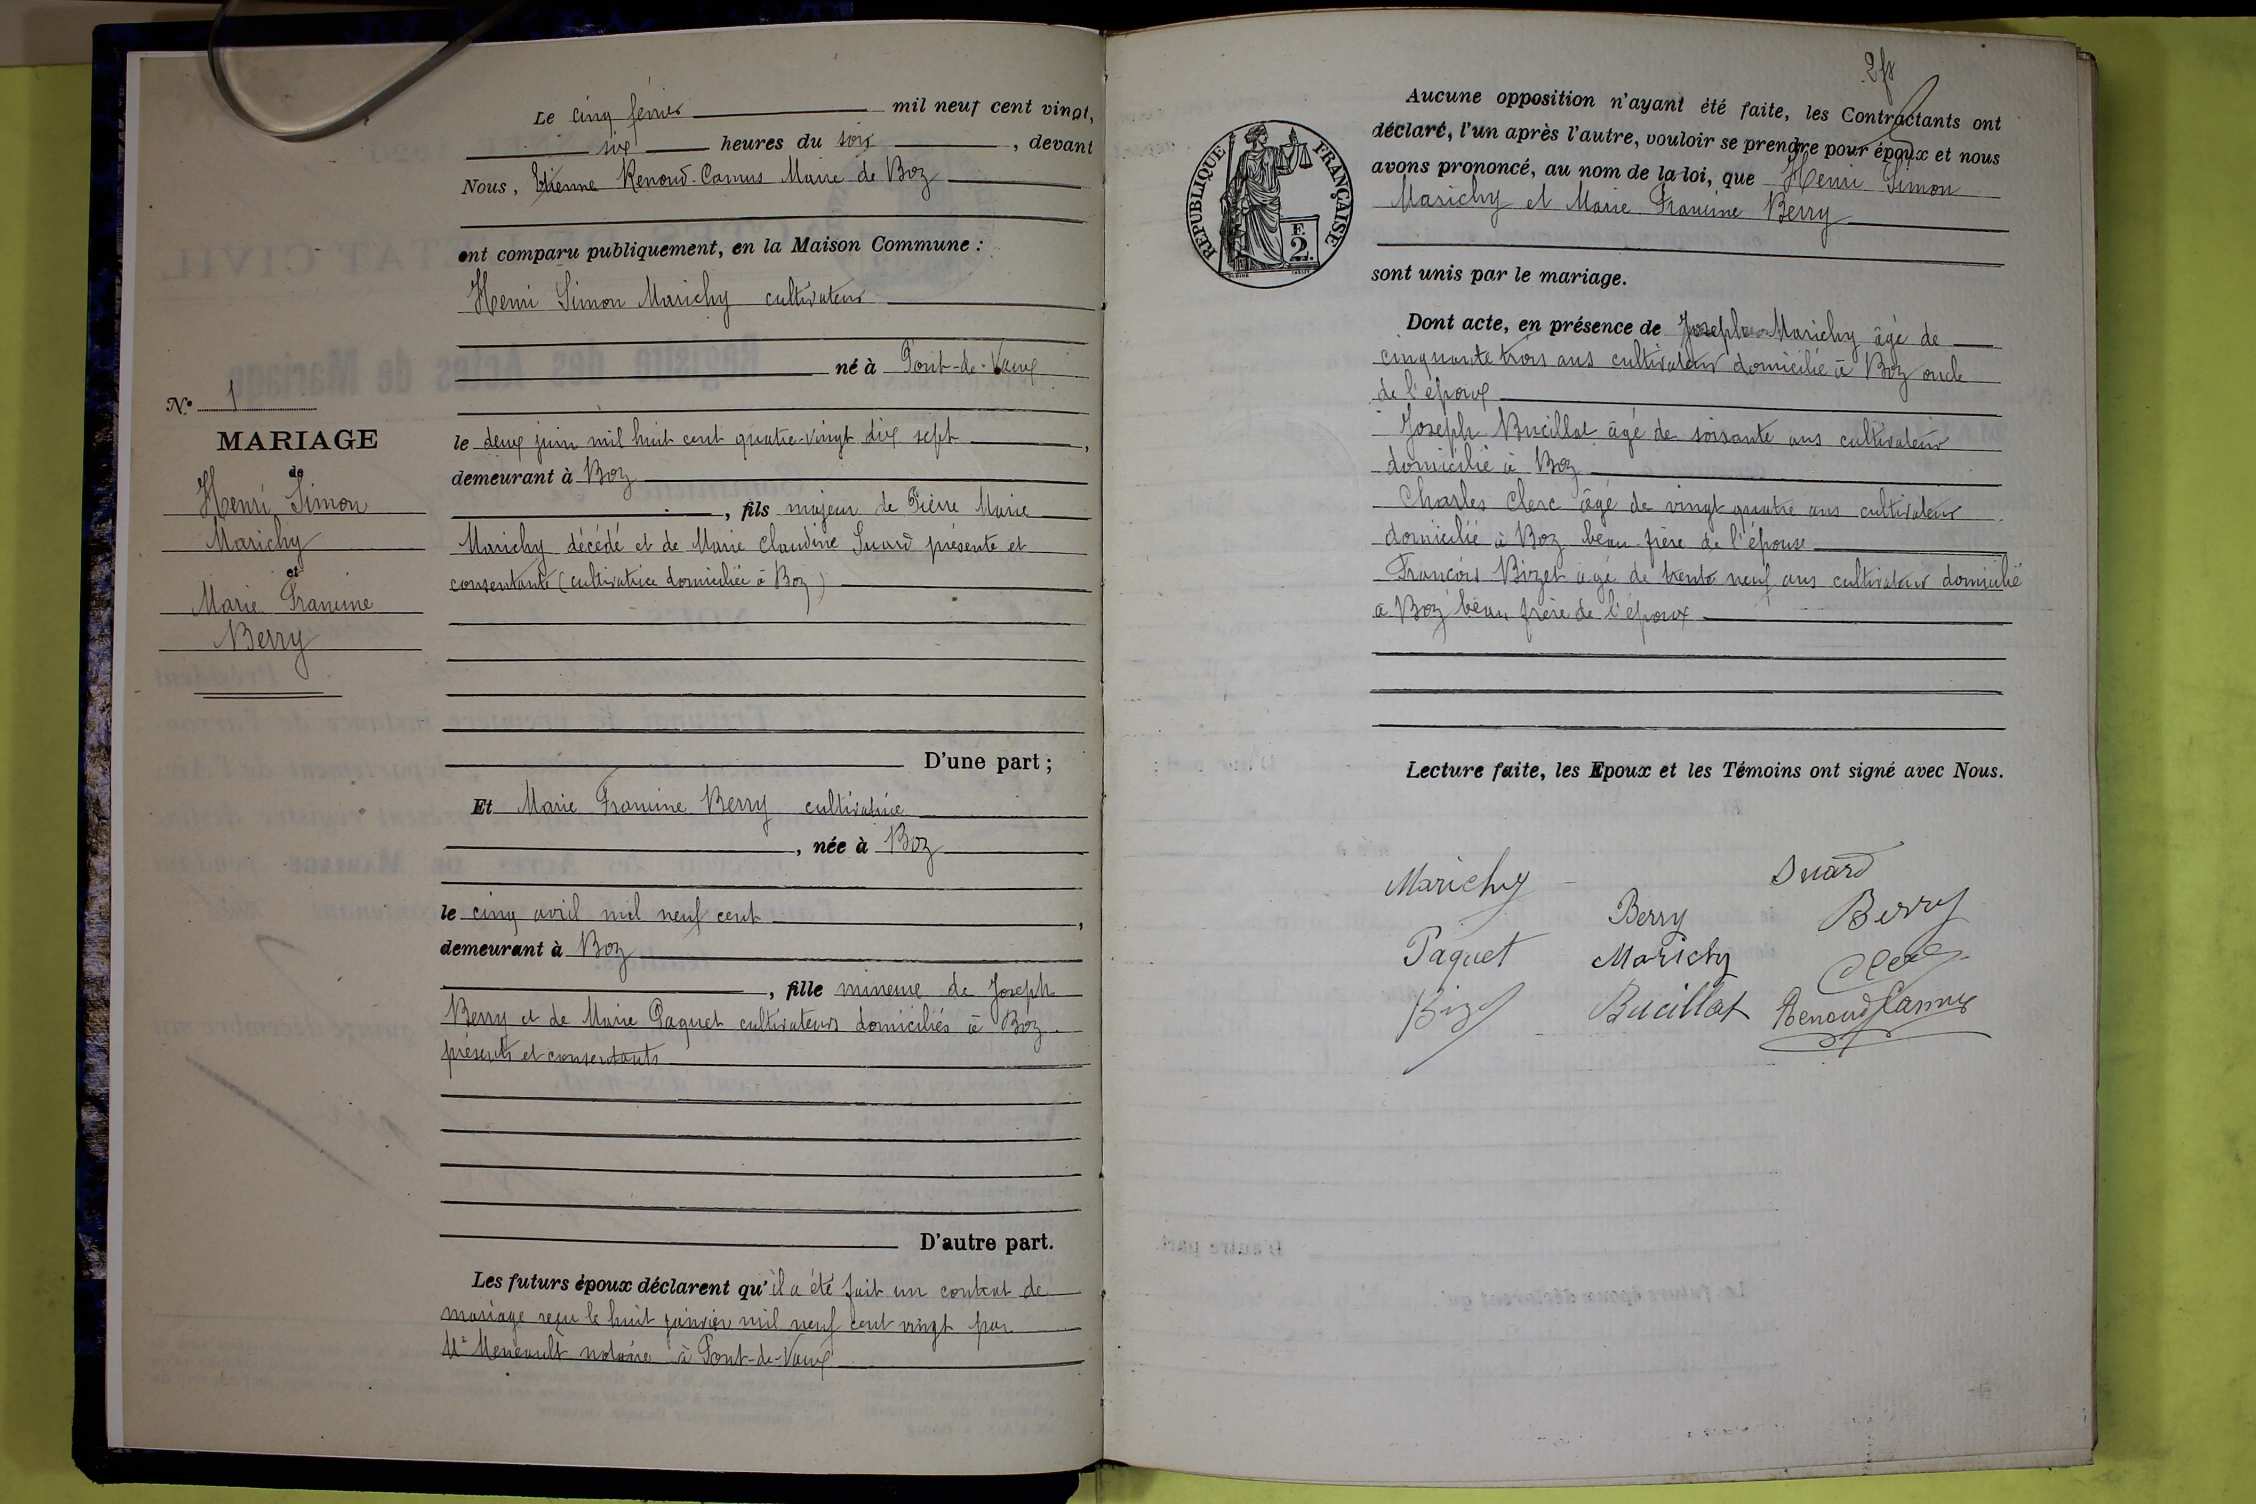 Le cinq février mil neuf cent vingt,
six heures du soir, devant
Nous, Etienne Renoud-Camus Maire de Boz
ont comparu publiquement, en la Maison Commune :
Henri Simon Marichy cultivateur
né à Pont-de-Vaux
le deux juin mil huit cent quatre-vingt dix sept,
demeurant à Boz
, fils majeur de Pierre Marie
Marichy décédé et de Marie Claudine Suard présente et
consentante (cultivatrice domiciliée à Boz)
D'une part ;
Et Marie Francine Berry cultivatrice
, née à Boz
le cinq avril mil neuf cent,
demeurant à Boz
, fille mineure de Joseph
Berry et de Marie Paquet cultivateurs domiciliés à Boz
présents et consentants
D'autre part.
Les futurs époux déclarent qu'il a été fait un contrat de
mariage reçu le huit janvier mil neuf cent vingt par
Me notaire à Pont-de-Vaux
N° 1
MARIAGE
de
Henri Simon
Marichy
et
Marie Francine
Berry
Aucune opposition n'ayant été faite, les Contractants ont
déclaré, l'un après l'autre, vouloir se prendre pour époux et nous
avons prononcé, au nom de la loi, que Henri Simon
Marichy et Marie Francine Berry
sont unis par le mariage.
RÉPUBLIQUE FRANÇAISE
2 F.
Dont acte, en présence de Joseph Marichy âgé de
cinquante trois ans cultivateur domicilié à Boz oncle
de l'époux
Joseph Bucillat âgé de soixante ans cultivateur
domicilié à Boz
Charles Clerc âgé de vingt quatre ans cultivateur
domicilié à Boz beau-frère de l'épouse
François Bizet âgé de trente neuf ans cultivateur domicilié
à Boz beau frère de l'époux
Lecture faite, les Epoux et les Témoins ont signé avec Nous.
Marichy Suard
Berry Berry
Paquet Marichy Clerc
Bizet Bucillat Renoud Camus